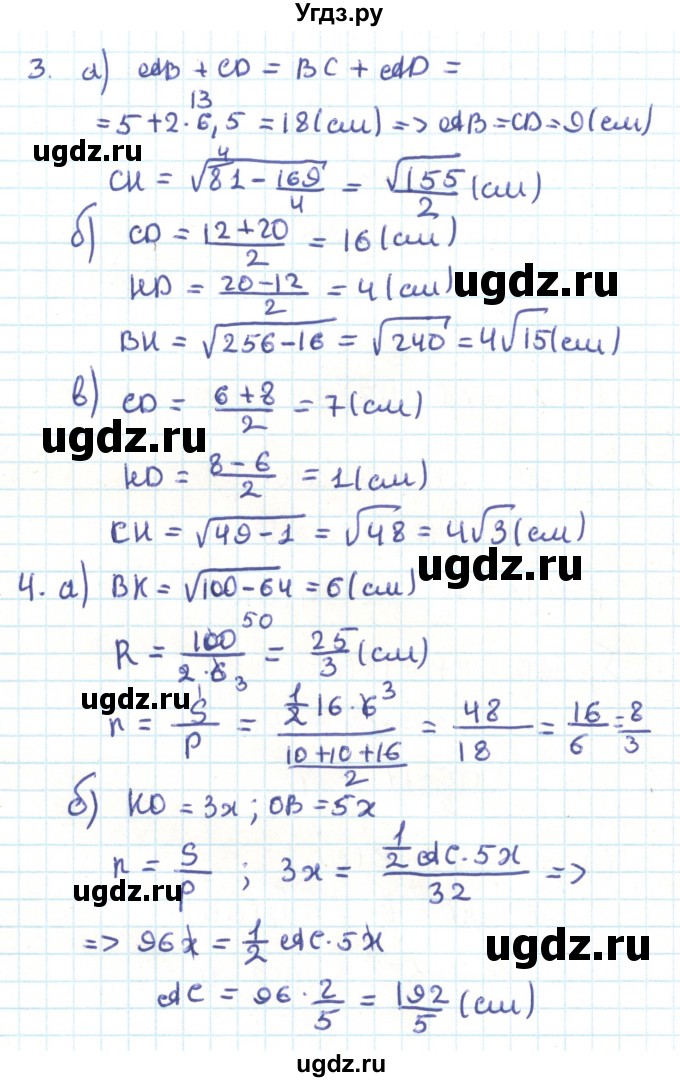 Угдз.ру
3. а) AB + CD = BC + AD =
= 5 + 2 · 6,5 = 18 (см) => AB = CD = 9 (см)
13
ugdz.ru
CK = √(81 - 169/4) = √155/2 (см)
4
б) CD = (12 + 20)/2 = 16 (см)
KD = (20 - 12)/2 = 4 (см)
ugdz.ru
BK = √(256 - 16) = √240 = 4√15 (см)
в) CD = (6 + 8)/2 = 7 (см)
ugdz.ru
KD = (8 - 6)/2 = 1 (см)
CK = √(49 - 1) = √48 = 4√3 (см)
ugdz.ru
4. а) BK = √(100 - 64) = 6 (см)
R = 100/(2 · 6) = 25/3 (см)
50
3
ugdz.ru
r = S/P = (1/2 16 · 6)/((10 + 10 + 16)/2) = 48/18 = 16/6 = 8/3
3
б) KO = 3x ; OB = 5x
r = S/P ; 3x = (1/2 AC · 5x)/32 =>
ugdz.ru
=> 96x = 1/2 AC · 5x
ugdz.ru
AC = 96 · 2/5 = 192/5 (см)
ugdz.ru